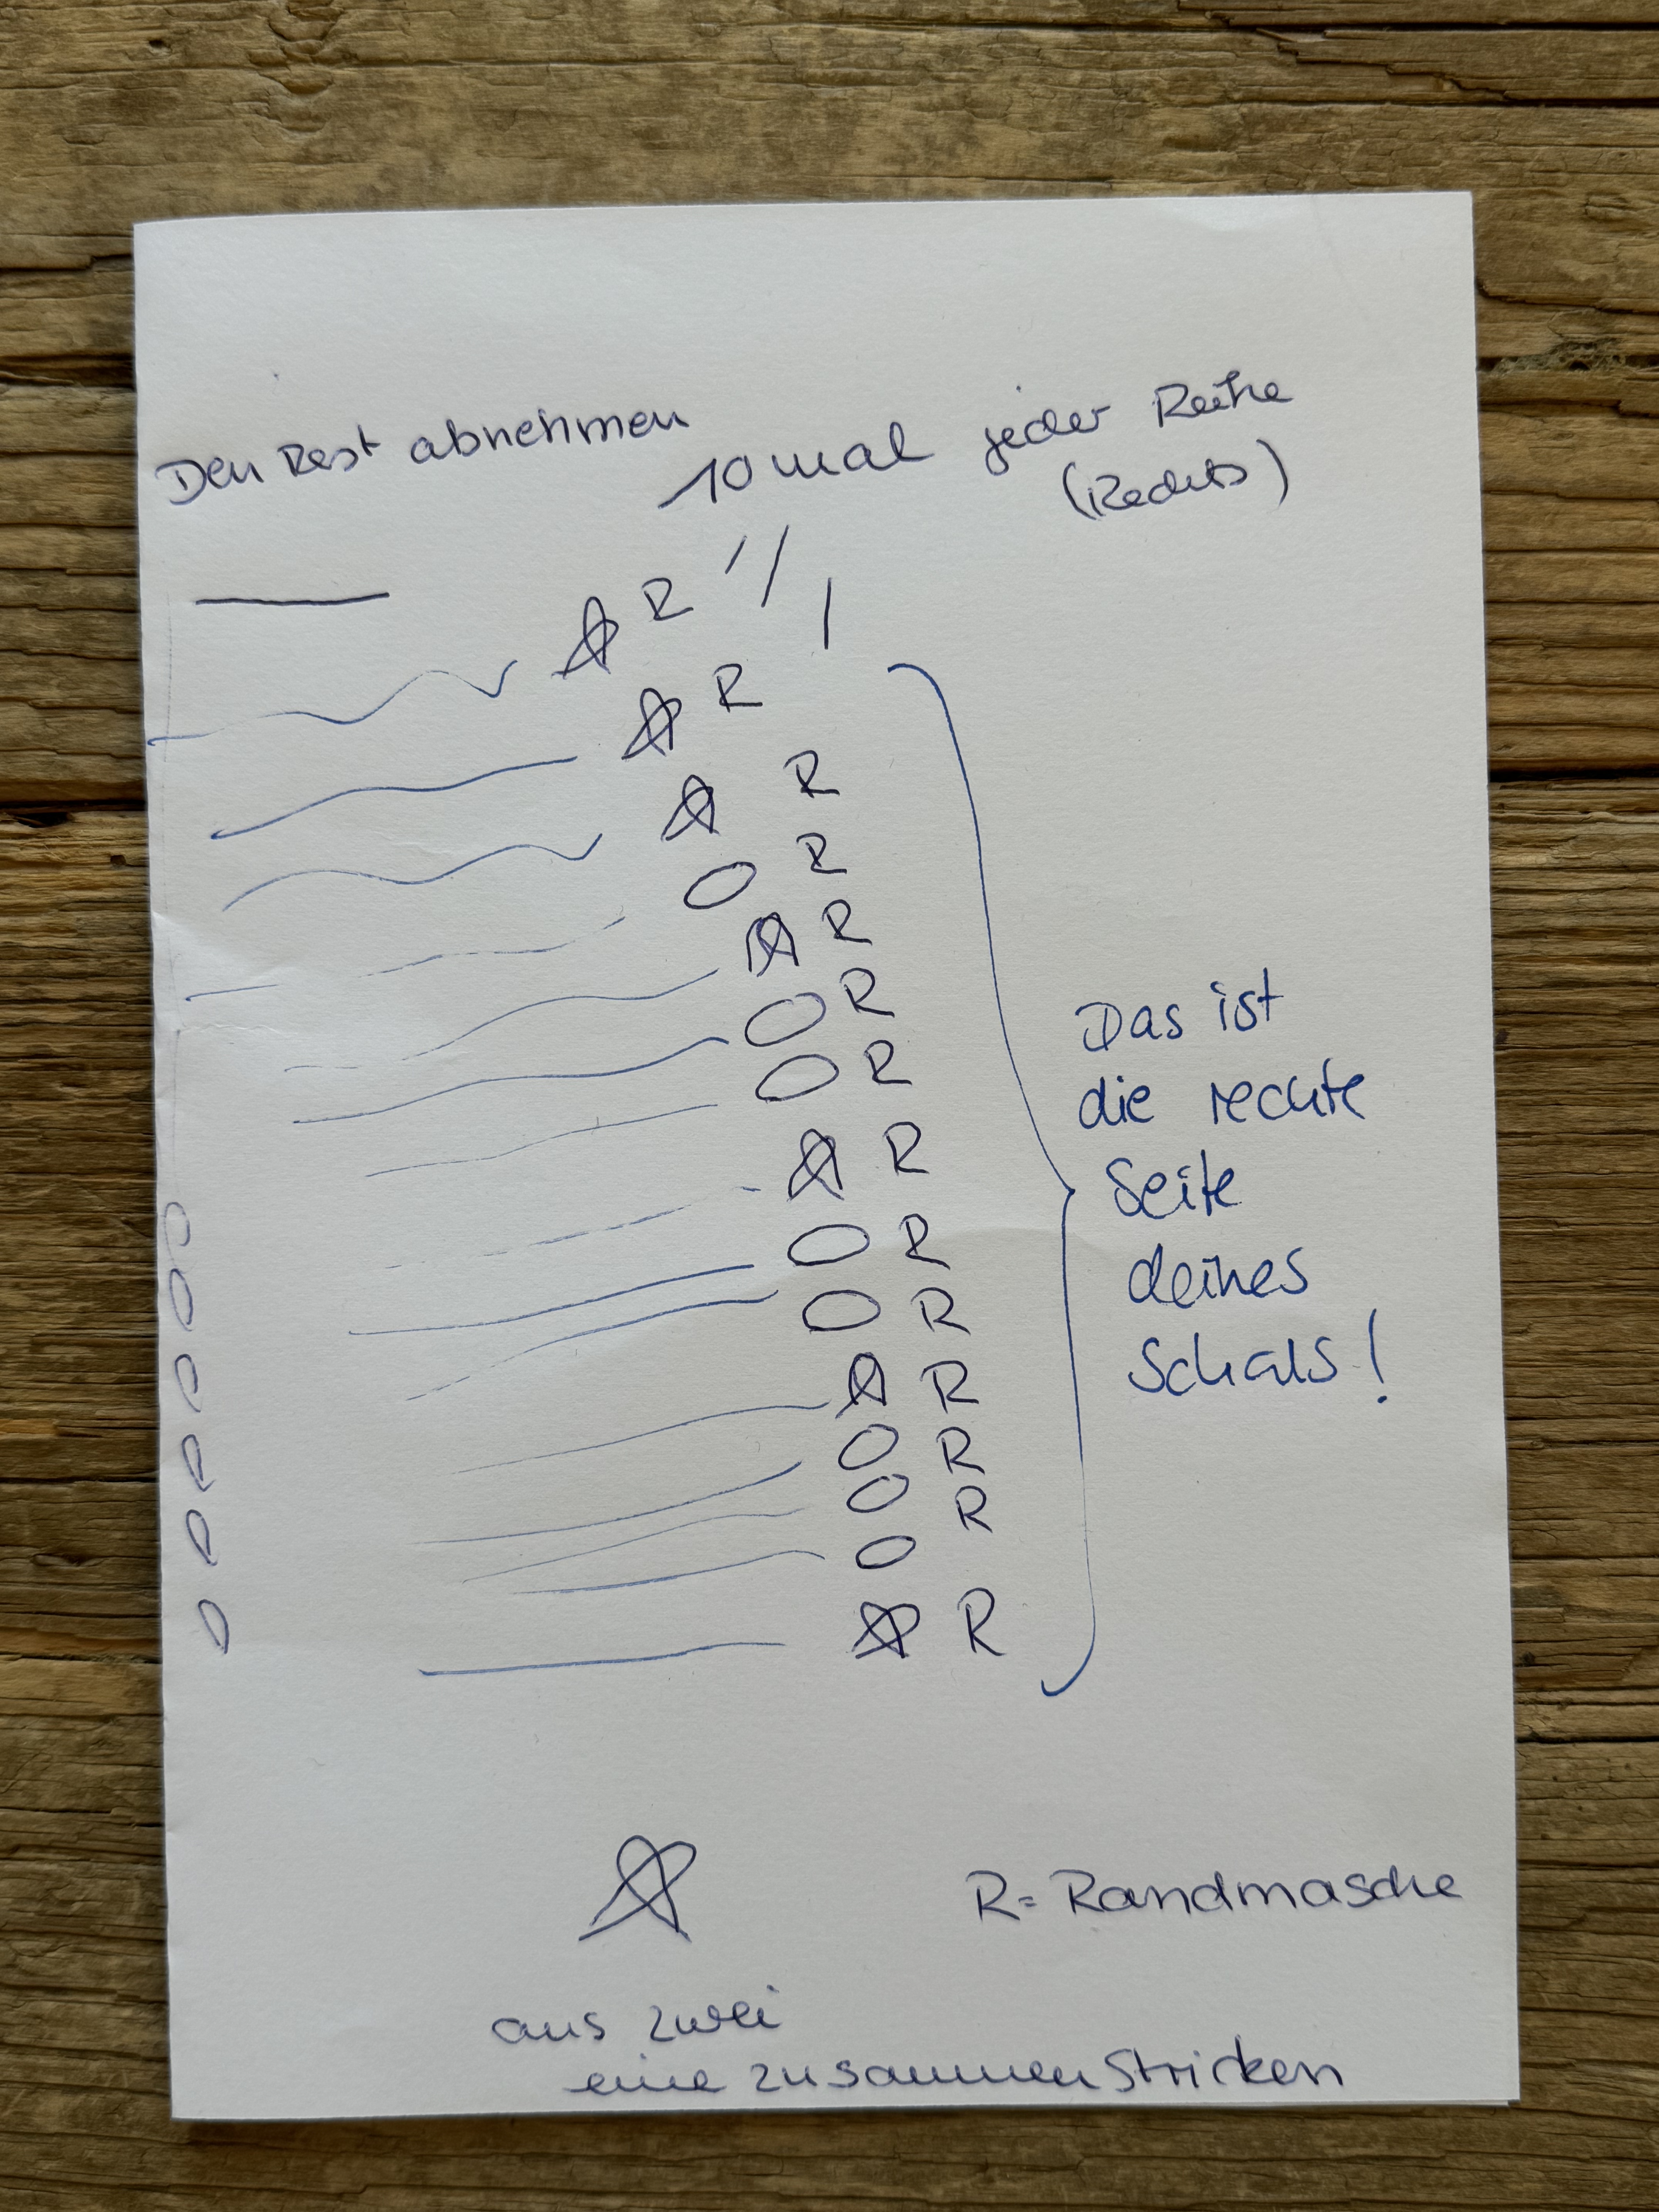 Den Rest abnehmen
10 mal jeder Reihe
(Rechts)
☆ R
☆ R
☆ R
O R
☆ R
O R
O R
☆ R
O R
O R
☆ R
O R
O R
O
☆ R
Das ist
die rechte
Seite
deines
Schals!
R = Randmasche
☆
aus zwei
eine zusammen stricken